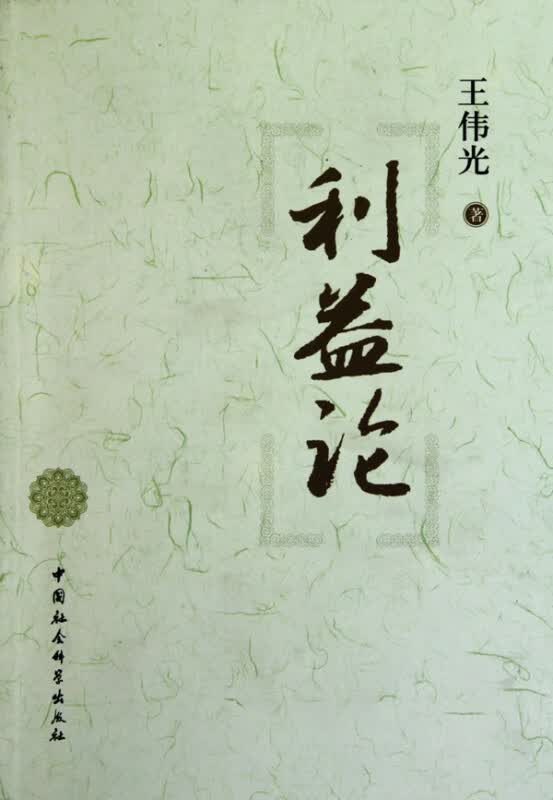 王伟光
著
利益论
中国社会科学出版社